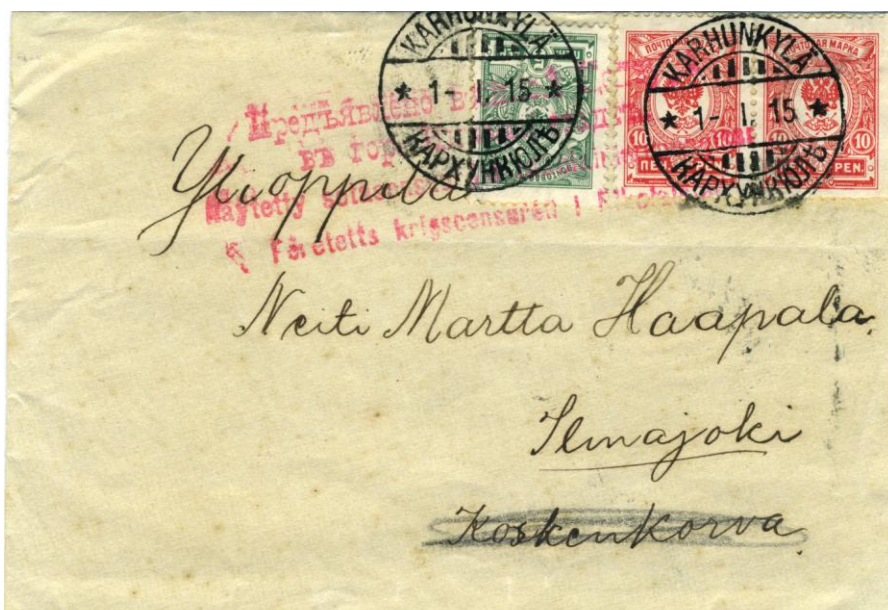 KARHUNKYLÄ
* 1- I. 15 *
КАРХУНКЮЛЬ
KARHUNKYLÄ
* 1- I. 15 *
КАРХУНКЮЛЬ
ПОЧТОВАЯ МАРКА
10 10
PEN.
Предъявлено
въ гор
Näytetty
Företetts krigscensuren i
Neiti Martta Haapala.
Ilmajoki
Koskenkorva